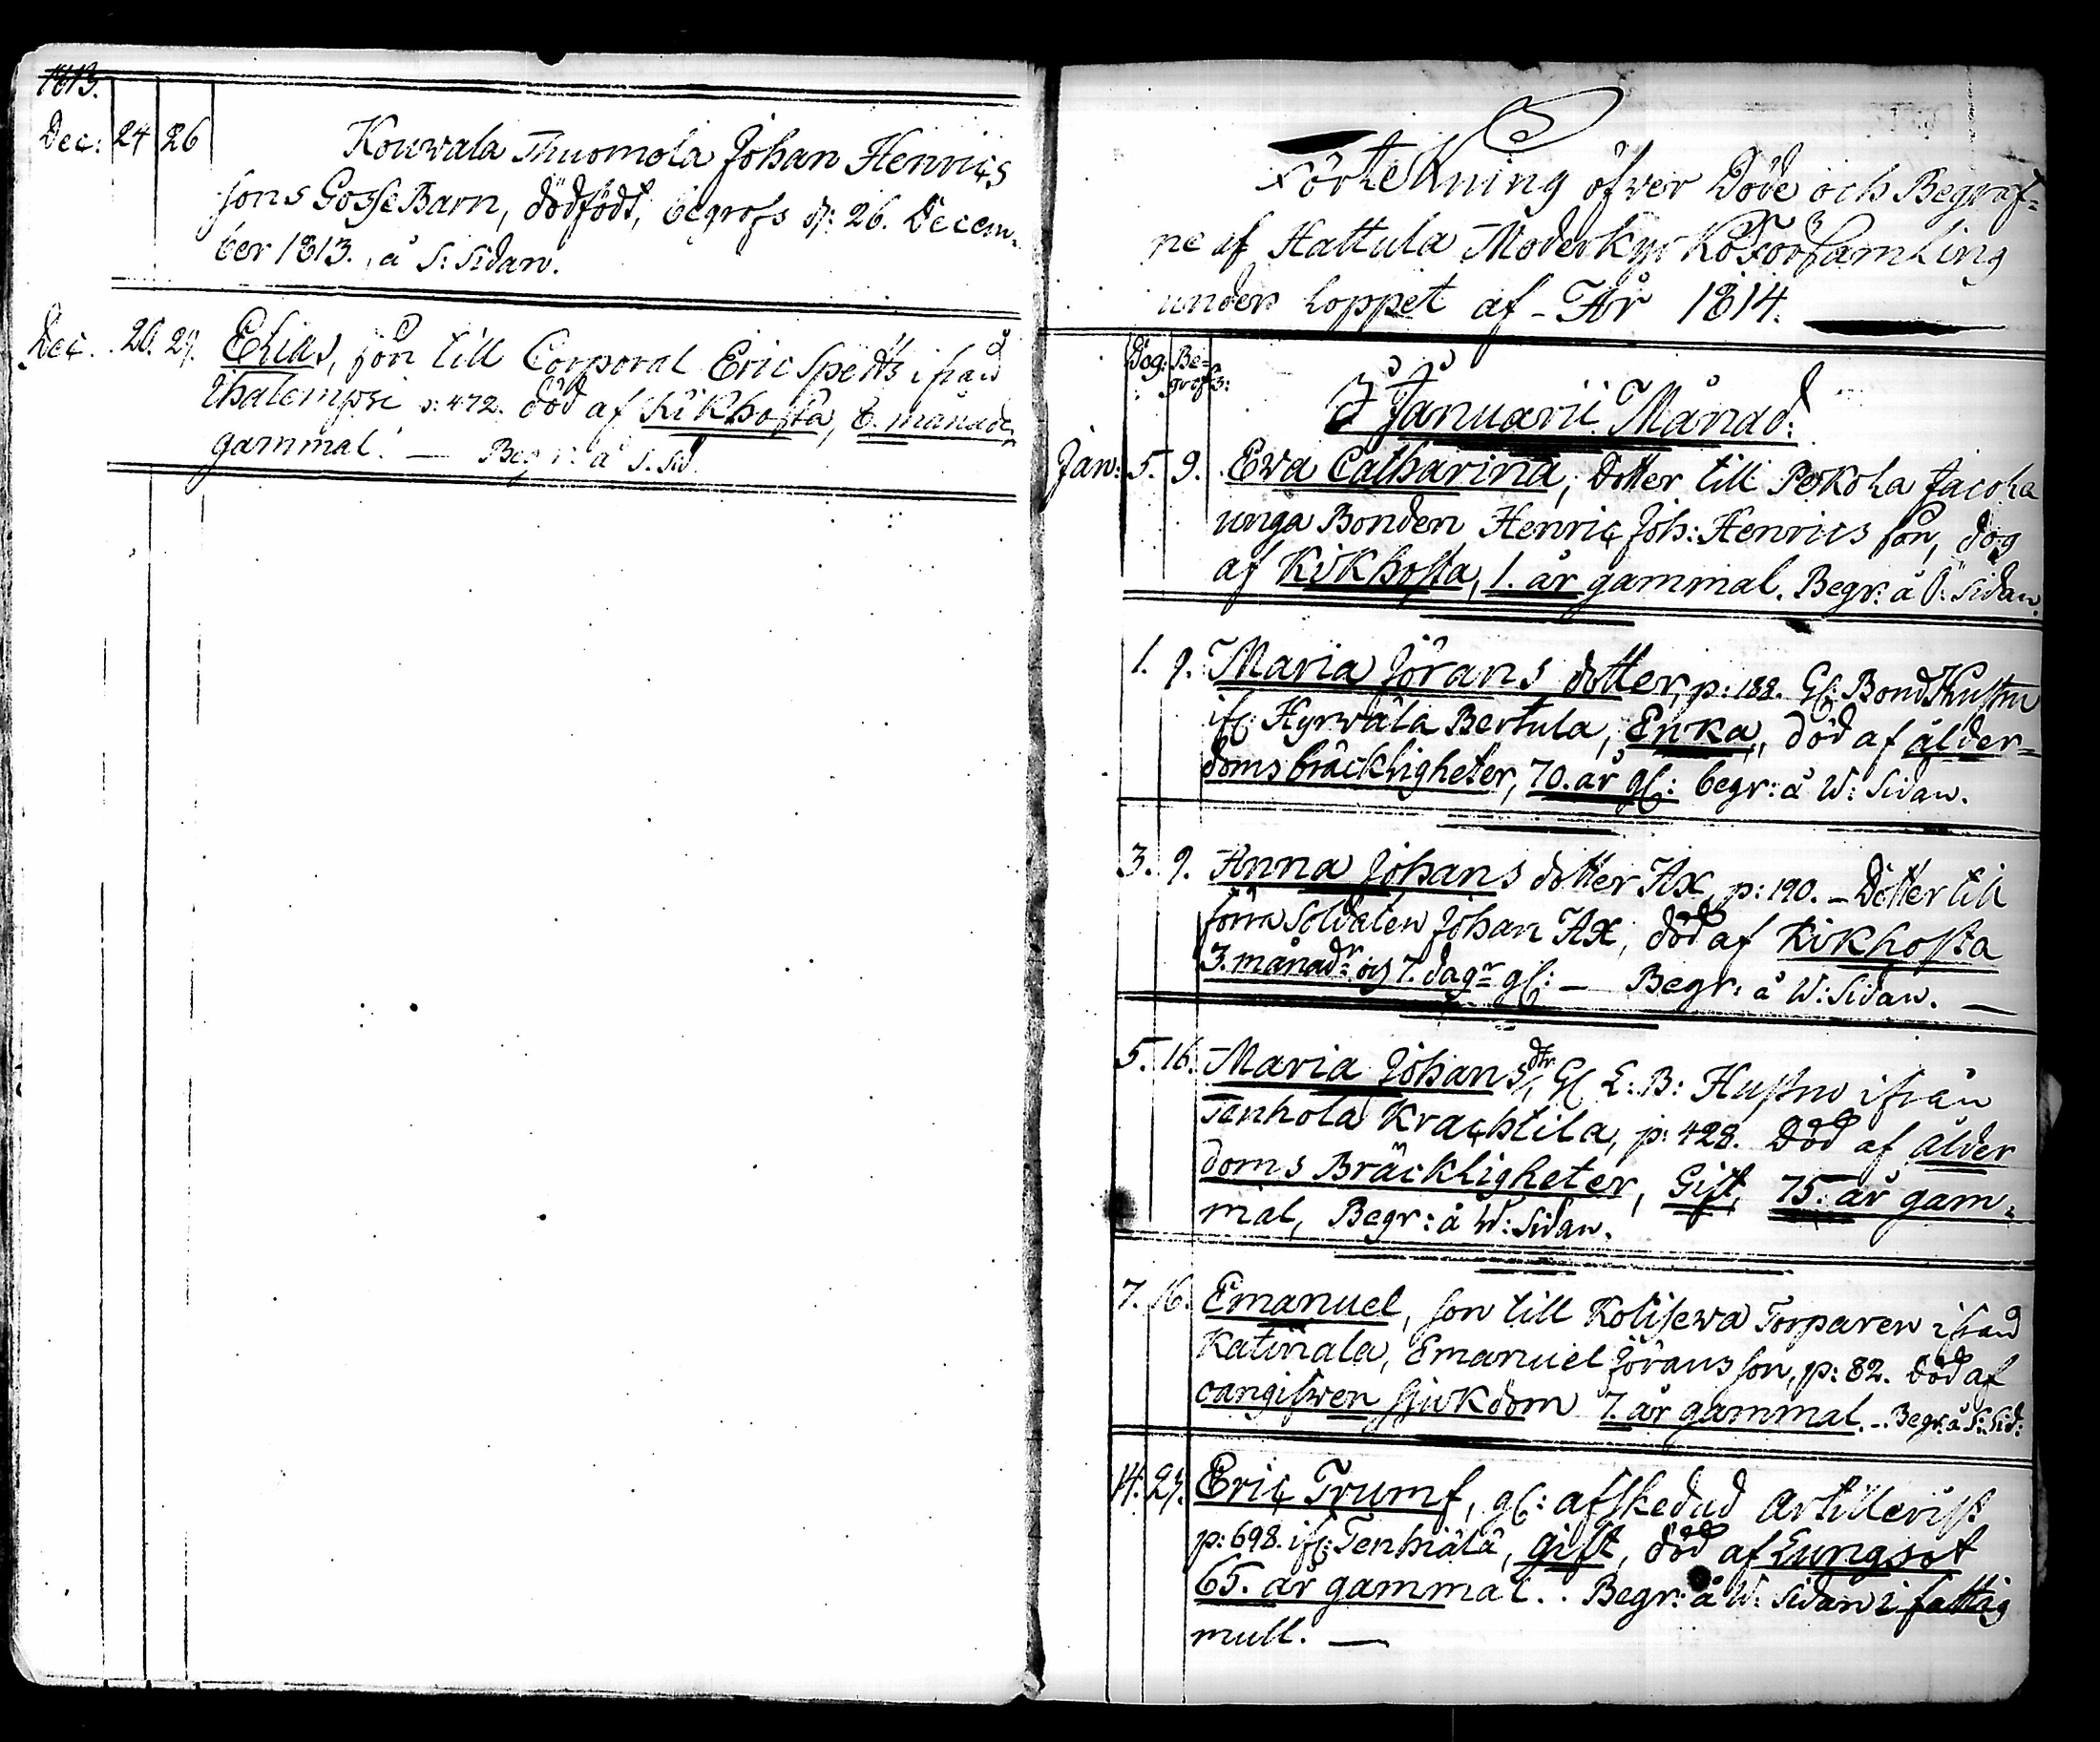 1813.
Dec: 24 26 Kouvala Thuomola Johan Henrics
sons GosseBarn, dödfödt, begrofs d: 26. Decem-
ber 1813. å S: Sidan.
Dec. 20. 29. Elias, son till Corporal Eric Spetts ifrån
Ihalempi p: 472. död af Kikhosta, 6. månader
gammal. — Begr: å S. Sid.
Förtekning öfver Döde och Begraf=
ne af Hattula Moderkyrko Församling
under loppet af År 1814.
Dog: Be-
grofs:
I Januarii Månad:
Jan: 5. 9. Ewa Catharina, dotter till Pekola Jacola
unga Bonden Henric Joh: Henrics son, dog
af Kikhosta, 1. år gammal. Begr: å S: Sidan.
1. 9. Maria Jörans dotter, p: 188. Gl: Bond Hustru
ifr: Hyrwälä Bertula, Enka, död af ålder=
doms bräckligheter, 70. år gl: begr: å W: Sidan.
3. 9. Anna Johans dotter Ax, p: 190. – Dotter till
förra Soldaten Johan Ax, död af Kikhosta
3. månadr: och 7. dagr gl: — Begr: å W: Sidan. —
5. 16. Maria Johans dtr, Gl E: B: Hustru ifrån
Tenhola Krachtila, p: 428. Död af ålder
doms Bräckligheter, Gift, 75. år gam-
mal, Begr: å W: Sidan.
7. 16. Emanuel, son till Kolisewa Torparen ifrån
Katinala, Emanuel Jörans son, p: 82. död af
oangifwen sjukdom 7. år gammal. – Begr: å S: Sid:
14. 23. Eric Trumf, gl: afskedad Artillerist
p: 698. ifr: Tenhiälä, gift, död af Lungsot
65. år gammal. . Begr: å W: Sidan i fattig
mull. —